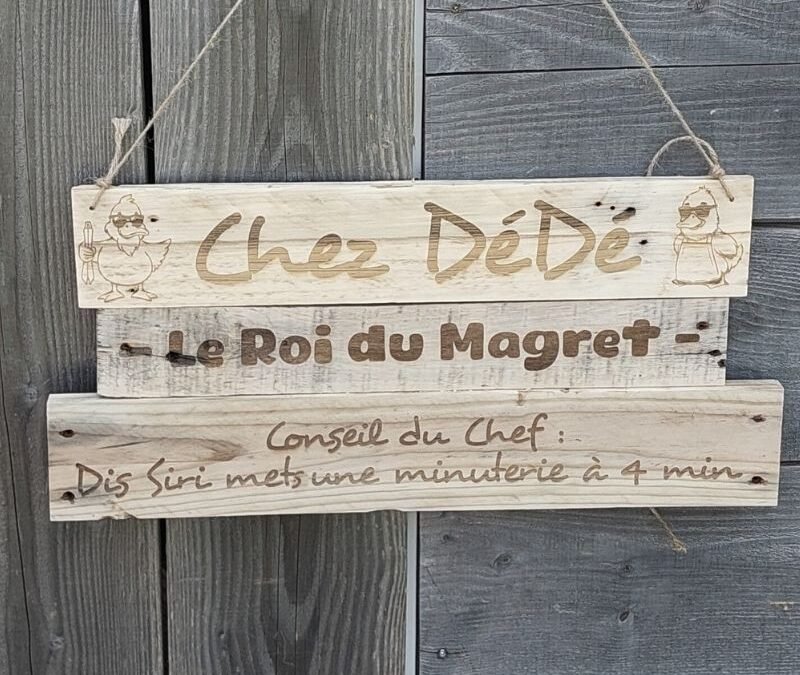 Chez DéDé
- Le Roi du Magret -
Conseil du Chef :
Dis Siri mets une minuterie à 4 min